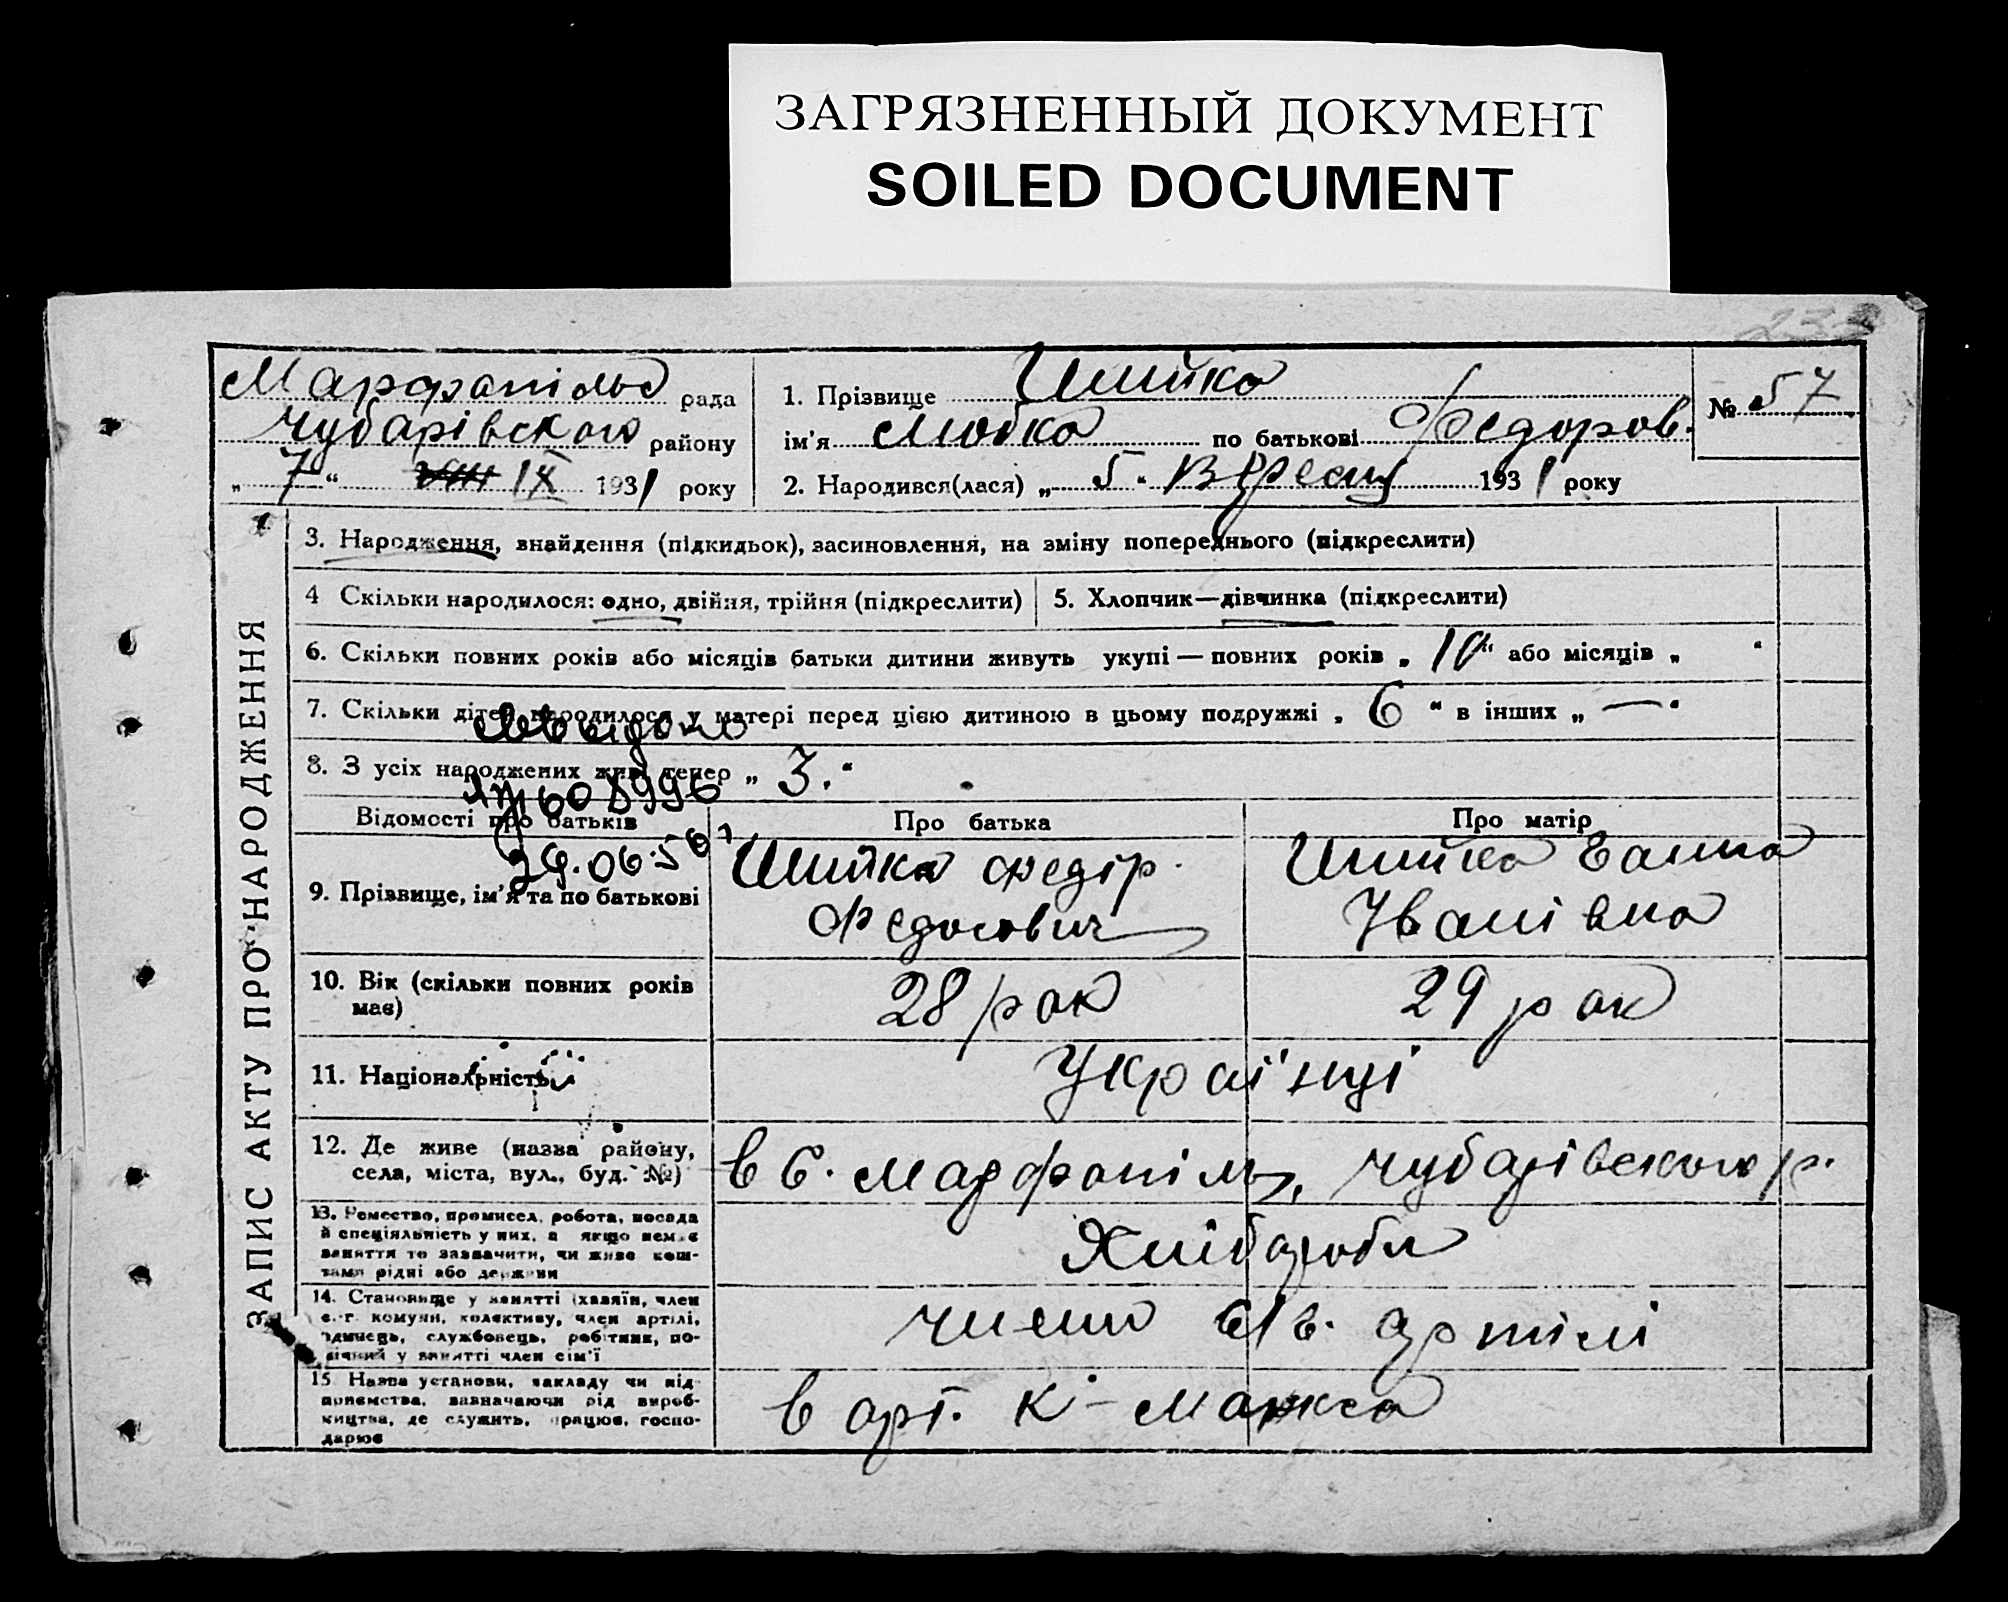 ЗАГРЯЗНЕННЫЙ ДОКУМЕНТ
SOILED DOCUMENT
Марфопільс рада
Чубарівского району
„ 7 “ IX 1931 року
1. Прізвище Шийка
ім’я Любка по батькові Федоров.
2. Народився(лася) „ 5 “ Вересня 1931 року
№ 57
ЗАПИС АКТУ ПРО НАРОДЖЕННЯ
3. Народження, знайдення (підкидьок), засиновлення, на зміну попереднього (підкреслити)
4 Скільки народилося: одно, двійня, трійня (підкреслити)
5. Хлопчик—дівчинка (підкреслити)
6. Скільки повних років або місяців батьки дитини живуть укупі — повних років „ 10 “ або місяців „ “
7. Скільки дітей народилося у матері перед цією дитиною в цьому подружжі „ 6 “ в інших „ — “
8. З усіх народжених живі тепер „ 3. “
608996
29.06.56
Відомості про батьків
Про батька
Про матір
9. Прізвище, ім’я та по батькові
Шийка Федір
Федосович
Шийка Ганна
Іванівна
10. Вік (скільки повних років
має)
28 рок
29 рок
11. Національність
Українці
12. Де живе (назва району,
села, міста, вул., буд. №)
в с. Марфопіль, Чубарівского р.
13. Ремество, промисел, робота, посада
й спеціяльність у них, а якщо немає
заняття то зазначити, чи живе кош-
тами рідні або держави
Хлібороби
14. Становище у занятті (хазяїн, член
с.-г. комуни, колективу, член артілі,
одинець, службовець, робітник, по-
мічний у занятті член сім’ї
члени с/г. артілі
15 Назва установи, закладу чи під-
приємства, зазначаючи рід вироб-
ництва, де служить, працює, госпо-
дарює
в арт. К-Маркса